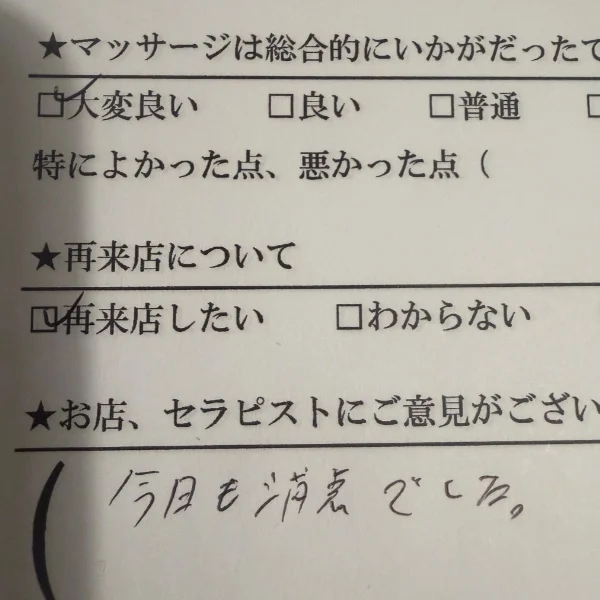 ★マッサージは総合的にいかがだったで
□大変良い □良い □普通 □
特によかった点、悪かった点（
★再来店について
□再来店したい □わからない
★お店、セラピストにご意見がござい
（今日も満点でした。